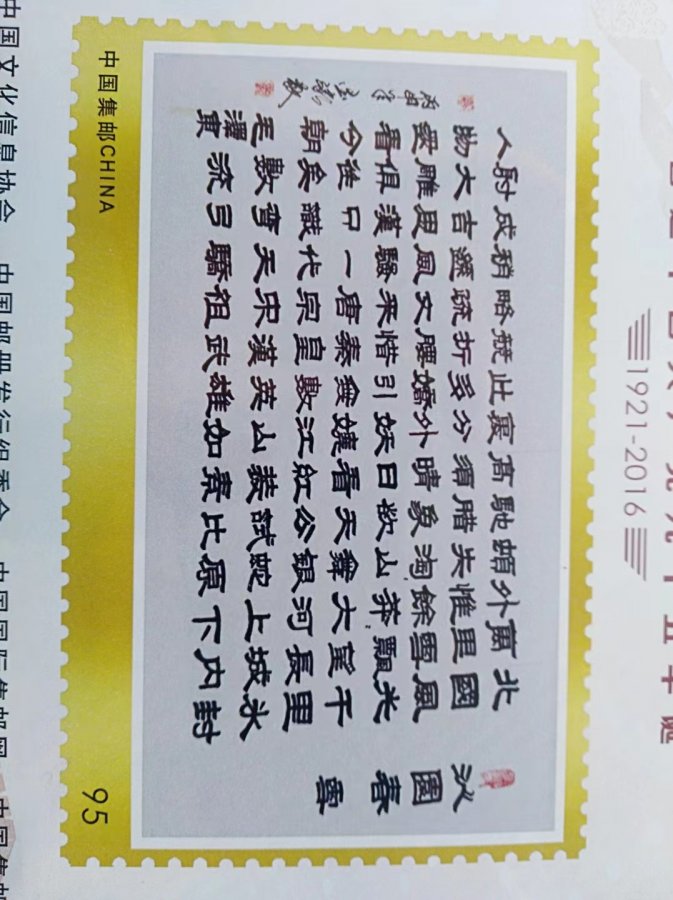 1921-2016
沁園春 雪
北國風光千里冰封
萬里雪飄望長城內
外惟餘莽大河上下
頓失滔山舞銀蛇原
馳臘象欲天公試比
高須晴日看紅裝素
裹分外妖嬈江山如
此多嬌引無數英雄
競折腰惜秦皇漢武
略疏文采唐宗宋祖
稍遜風騷一代天驕
成吉思漢只識彎弓
射大雕俱往矣數流
人物還看今朝毛澤東
中国集邮CHINA
95
中国文化信息协会 中国邮册发行组委会 中国国际集邮网 中国集邮